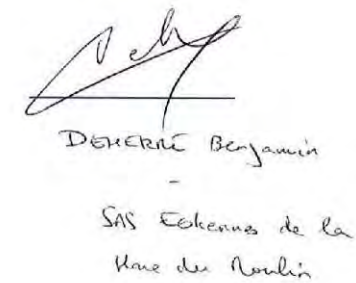 DEHERRE Benjamin
-
SAS Eoliennes de la
du Moulin